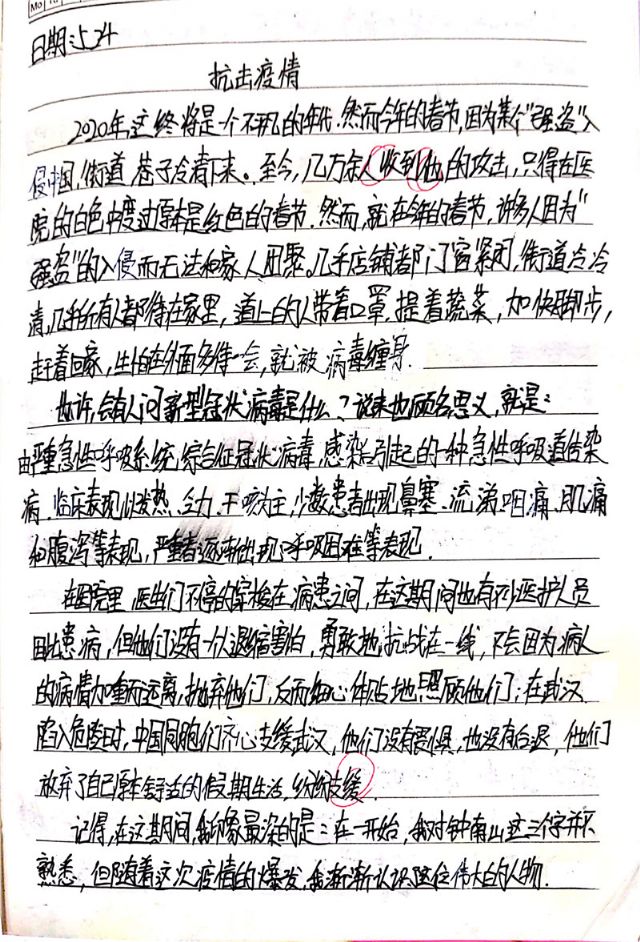 Mo Tu
日期:5.24
抗击疫情
2020年,这终将是一个不平凡的年代.然而今年的春节,因为某个"强盗"入
侵中国,街道、巷子冷清下来。至今,几万余人收到他的攻击,只得在医
院的白色中度过原本是红色的春节.然而,就在今年的春节,许多人因为"
强盗"的入侵而无法和家人团聚.几乎店铺都门窗紧闭,街道冷冷
清,几乎所有人都待在家里,道上的人带着口罩,提着蔬菜,加快脚步,
赶着回家,生怕在外面多待一会,就被病毒缠身.
也许,会有人问新型冠状病毒是什么?说来也顾名思义,就是:
由严重急性呼吸系统综合征冠状病毒感染引起的一种急性呼吸道传染
病.临床表现以发热、乏力、干咳为主,少数患者出现鼻塞、流涕、咽痛、肌痛
和腹泻等表现,严重者逐渐出现呼吸困难等表现.
在医院里,医生们不停的穿梭在病患之间,在这期间也有不少医护人员
因此患病,但他们没有一个人退缩害怕,勇敢地抗战在一线,不会因为病人
的病情加重而远离,抛弃他们,反而细心体贴地照顾他们;在武汉
陷入危险时,中国同胞们齐心支缓武汉,他们没有畏惧,也没有后退,他们
放弃了自己原本舒适的假期生活,纷纷支缓.
记得,在这期间,我印象最深的是:在一开始,我对钟南山这三个字并不
熟悉,但随着这次疫情的爆发,我渐渐认识这位伟大的人物.